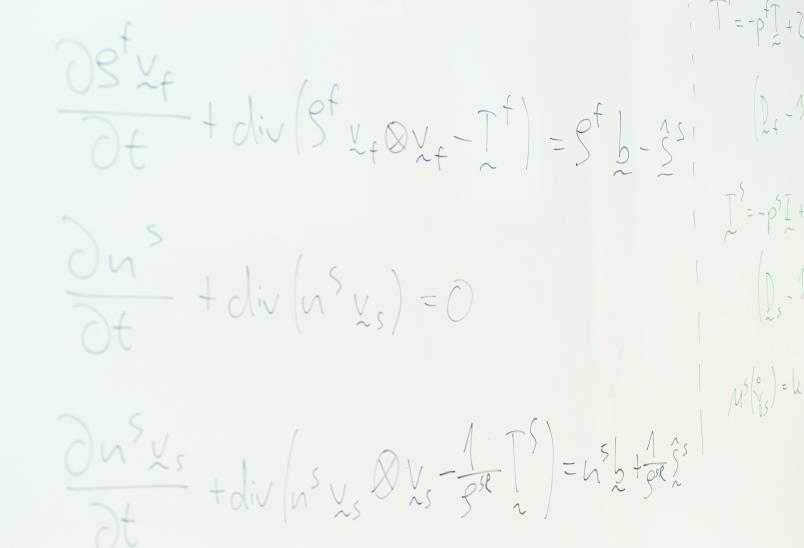 ∂ρᶠ v_f / ∂t + div(ρᶠ v_f ⊗ v_f − Tᶠ) = ρᶠ b − ŝˢ
∂nˢ / ∂t + div(nˢ v_s) = 0
∂nˢ v_s / ∂t + div(nˢ v_s ⊗ v_s − 1/ρˢᴿ Tˢ) = nˢ b + 1/ρˢᴿ ŝˢ
= −pᶠ I +
(D_f −
Tˢ = −pˢ I +
(D_s −
μˢ(γ̊_s) = k